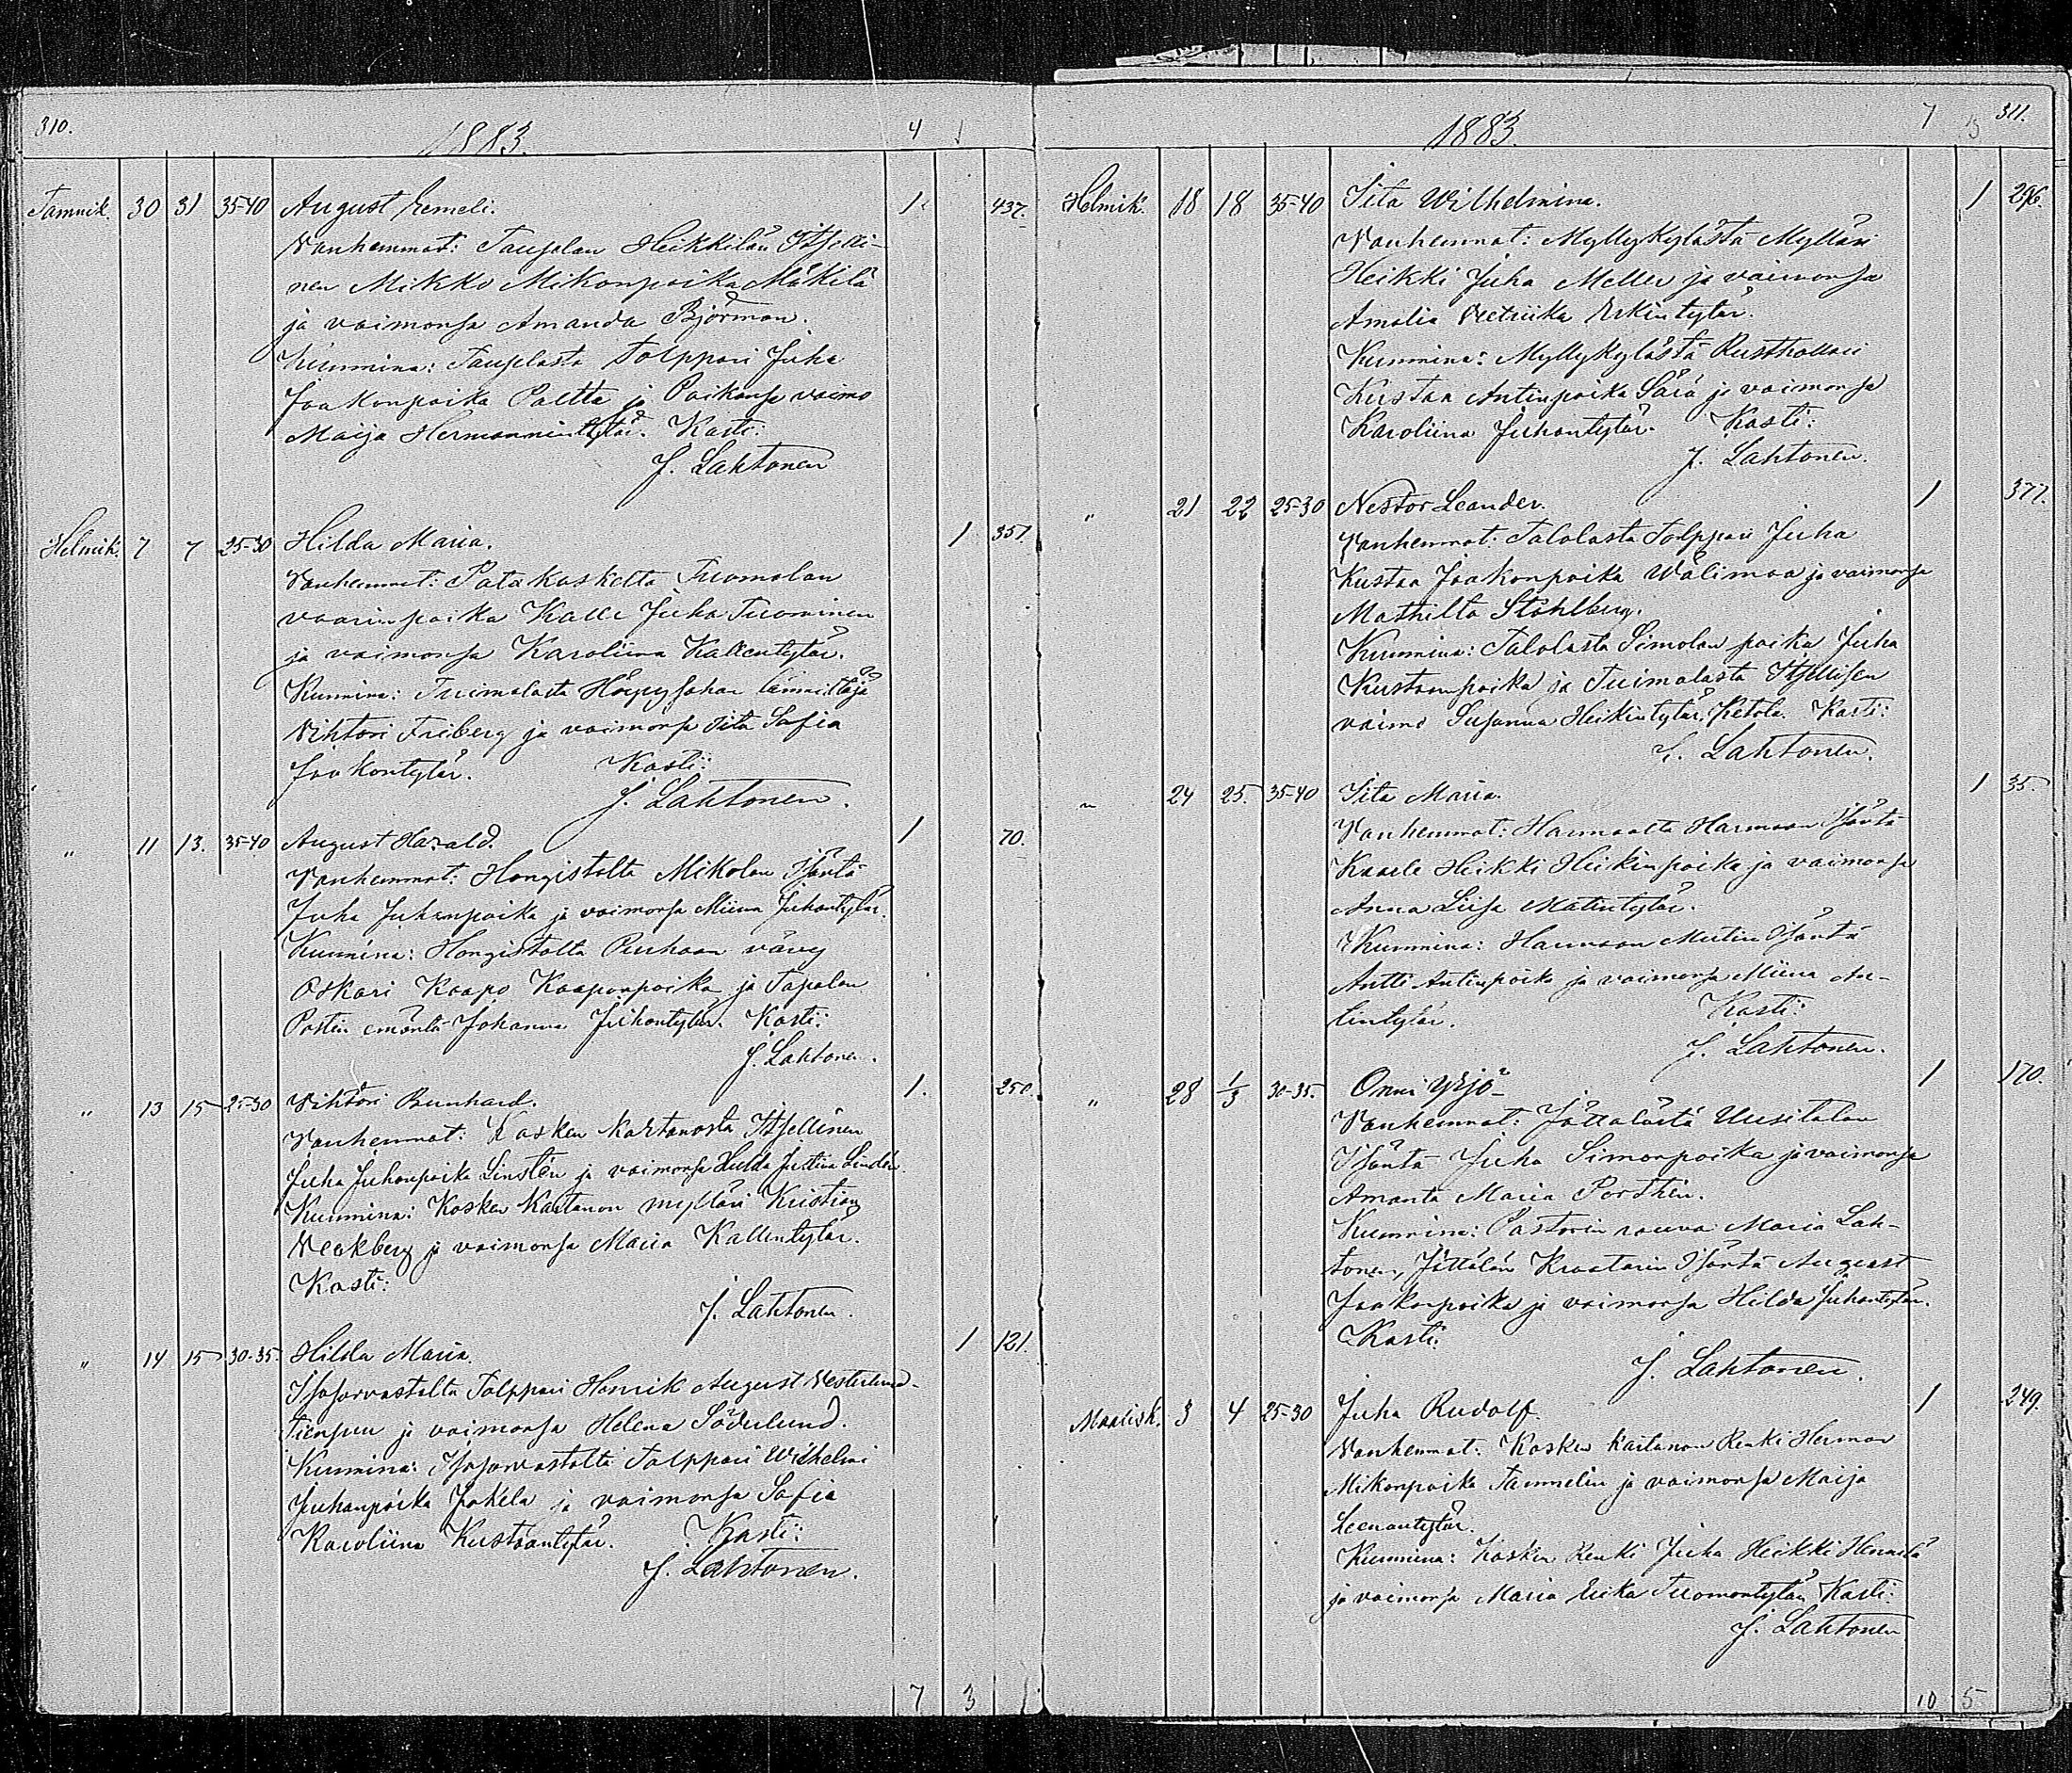 310.
1883.
4 1
Tammik. 30 31 35-40 August Eemeli. 1 437.
Vanhemmat: Taujalan Heikkilän Itselli-
nen Mikko Mikonpoika Mäkilä
ja vaimonsa Amanda Björman.
Kummina: Torppari Juha
Jaakonpoika Paltta ja Poikansa vaimo
Maija Hermannintytär. Kasti:
J. Lahtonen
Helmik. 7 7 25-30 Hilda Maria. 1 351
Vanhemmat: Patakoskelta Tuomolan
vaarinpoika Kalle Juha Tuominen
ja vaimonsa Karoliina Kallentytär.
Kummina: Tuimalasta Höyrysahan lämmittäjä
Vihtori Friberg ja vaimonsa Iita Sofia
Jaakontytär. Kasti:
J. Lahtonen.
" 11 13. 35-40 August Harald. 1 70.
Vanhemmat: Hongistolta Mikolan Isäntä
Juha Juhanpoika ja vaimonsa Miina Juhantytär.
Kummina: Hongistolta Puhaan vävy
Oskari Kaapo Kaaponpoika ja Tapalan
Postin emäntä Johanna Juhantytär. Kasti:
J. Lahtonen.
" 13 15 25-30 Vihtori Bernhard. 1. 250.
Vanhemmat: Kosken Kartanosta Itsellinen
Juha Juhanpoika Linstén ja vaimonsa Hulda Justiina Lindén
Kummina: Kosken Kartanon mylläri Kristian
Veckberg ja vaimonsa Maria Kallentytär.
Kasti:
J. Lahtonen.
" 14 15 30-35. Hilda Maria. 1 121.
Isosorvastolta Torppari Henrik August Vesterlund-
Tienpuu ja vaimonsa Helena Söderlund.
Kummina: Isosorvastolta Torppari Wilhelmi
Juhanpoika Jokela ja vaimonsa Sofia
Karoliina Kustaantytär. Kasti:
J. Lahtonen.
7 3
7 3 311.
1883.
Helmik. 18 18 35-40 Iita Wilhelmina. 1 296.
Vanhemmat: Myllykylästä Mylläri
Heikki Juha Meller ja vaimonsa
Amalia Vretriika Erkintytär.
Kummina: Myllykylästä Rusthollari
Kustaa Antinpoika Säiä ja vaimonsa
Karoliina Juhantytär. Kasti:
J. Lahtonen.
" 21 22 25-30 Nestor Leander. 1 377.
Vanhemmat: Talolasta Torppari Juha
Kustaa Jaakonpoika Wälimaa ja vaimonsa
Mathilta Ståhlberg.
Kummina: Talolasta Simolan poika Juha
Kustaanpoika ja Tuimalasta Itsellisen
vaimo Susanna Heikintytär Ketola. Kasti:
J. Lahtonen.
" 24 25. 35-40 Iita Maria. 1 35.
Vanhemmat: Harmaalta Harmaan Isäntä
Kaarle Heikki Heikinpoika ja vaimonsa
Anna Liisa Matintytär.
Kummina: Harmaan Isäntä
Antti Antinpoika ja vaimonsa Miina An-
tintytär. Kasti:
J. Lahtonen.
" 28 1/3 30-35. Onni Yrjö 1 170.
Vanhemmat: Jättälästä Uusitalon
Isäntä Juha Simonpoika ja vaimonsa
Amanta Maria Porthén.
Kummina: Pastorin rouva Maria Lah-
tonen, Jättälän Kraatarin Isäntä August
Jaakonpoika ja vaimonsa Hilda Juhantytär.
Kasti:
J. Lahtonen.
Maalisk. 3 4 25-30 Juha Rudolf. 1 249.
Vanhemmat: Kosken kartanon Renki Herman
Mikonpoika Tammelin ja vaimonsa Maija
Leenantytär.
Kummina: Kosken Renki Juha Heikki Hennelä
ja vaimonsa Maria Erika Tuomontytär Kasti:
J. Lahtonen
10 5